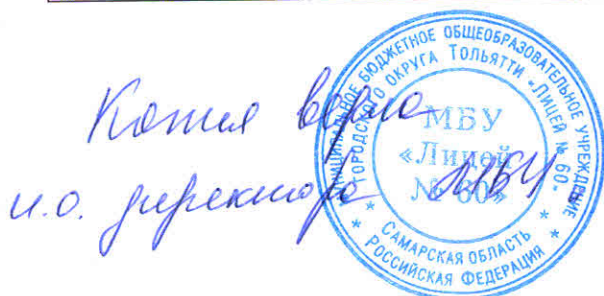 Копия верна
и.о. директора МБУ
МУНИЦИПАЛЬНОЕ БЮДЖЕТНОЕ ОБЩЕОБРАЗОВАТЕЛЬНОЕ УЧРЕЖДЕНИЕ
ГОРОДСКОГО ОКРУГА ТОЛЬЯТТИ «ЛИЦЕЙ № 60»
МБУ
«Лицей
№ 60»
* САМАРСКАЯ ОБЛАСТЬ *
* РОССИЙСКАЯ ФЕДЕРАЦИЯ *